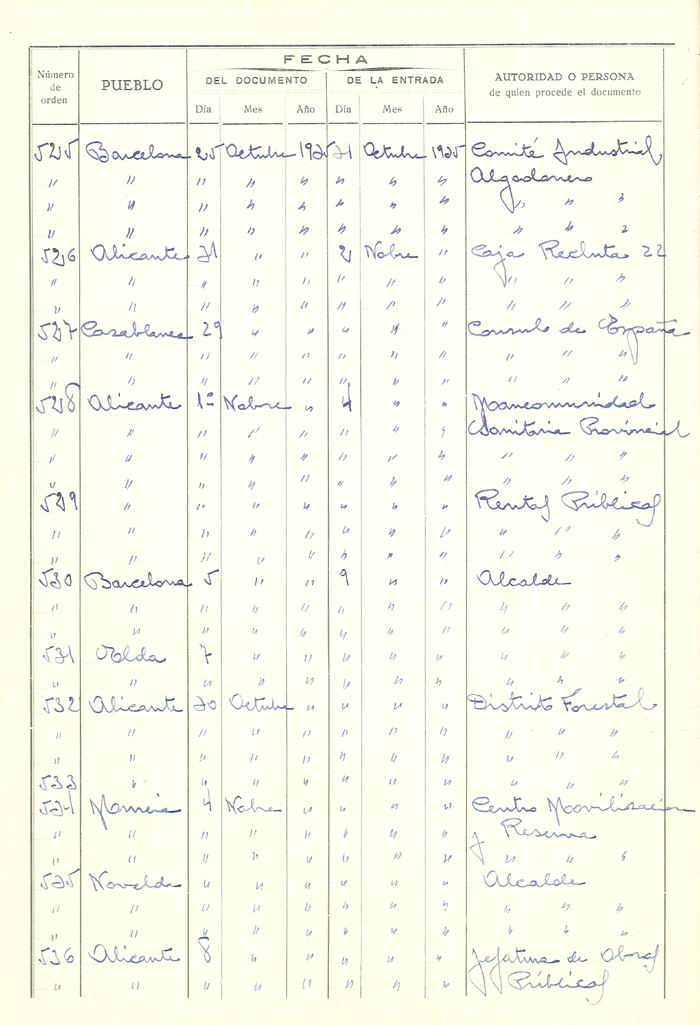 FECHA
Número de orden
PUEBLO
DEL DOCUMENTO
DE LA ENTRADA
AUTORIDAD O PERSONA
de quien procede el documento
Día Mes Año Día Mes Año
525 Barcelona 25 Octubre 1935 31 Octubre 1935 Comité Industrial
" " " " " " " " Algodonero
" " " " " " " " " " "
" " " " " " " " " " "
526 Alicante 31 " " 2 Nobre " Caja Recluta 22
" " " " " " " " " " "
" " " " " " " " " " "
527 Casablanca 29 " " " " " Consulo de España
" " " " " " " " " " "
" " " " " " " " " " "
528 Alicante 1º Nobre " 4 " " Mancomunidad
" " " " " " " " Sanitaria Provincial
" " " " " " " " " " "
" " " " " " " " " " "
529 " " " " " " " Rentas Públicas
" " " " " " " " " " "
" " " " " " " " " " "
530 Barcelona 5 " " 9 " " Alcalde
" " " " " " " " " " "
" " " " " " " " " " "
531 Elda 7 " " " " " " " "
" " " " " " " " " " "
532 Alicante 30 Octubre " " " " Distrito Forestal
" " " " " " " " " " "
" " " " " " " " " " "
533 " " " " " " " " " "
534 Murcia 4 Nobre " " " " Centro Movilización
" " " " " " " " y Reserva
" " " " " " " " " " "
535 Novelda " " " " " " Alcalde
" " " " " " " " " " "
" " " " " " " " " " "
536 Alicante 8 " " " " " Jefatura de Obras
" " " " " " " " Públicas